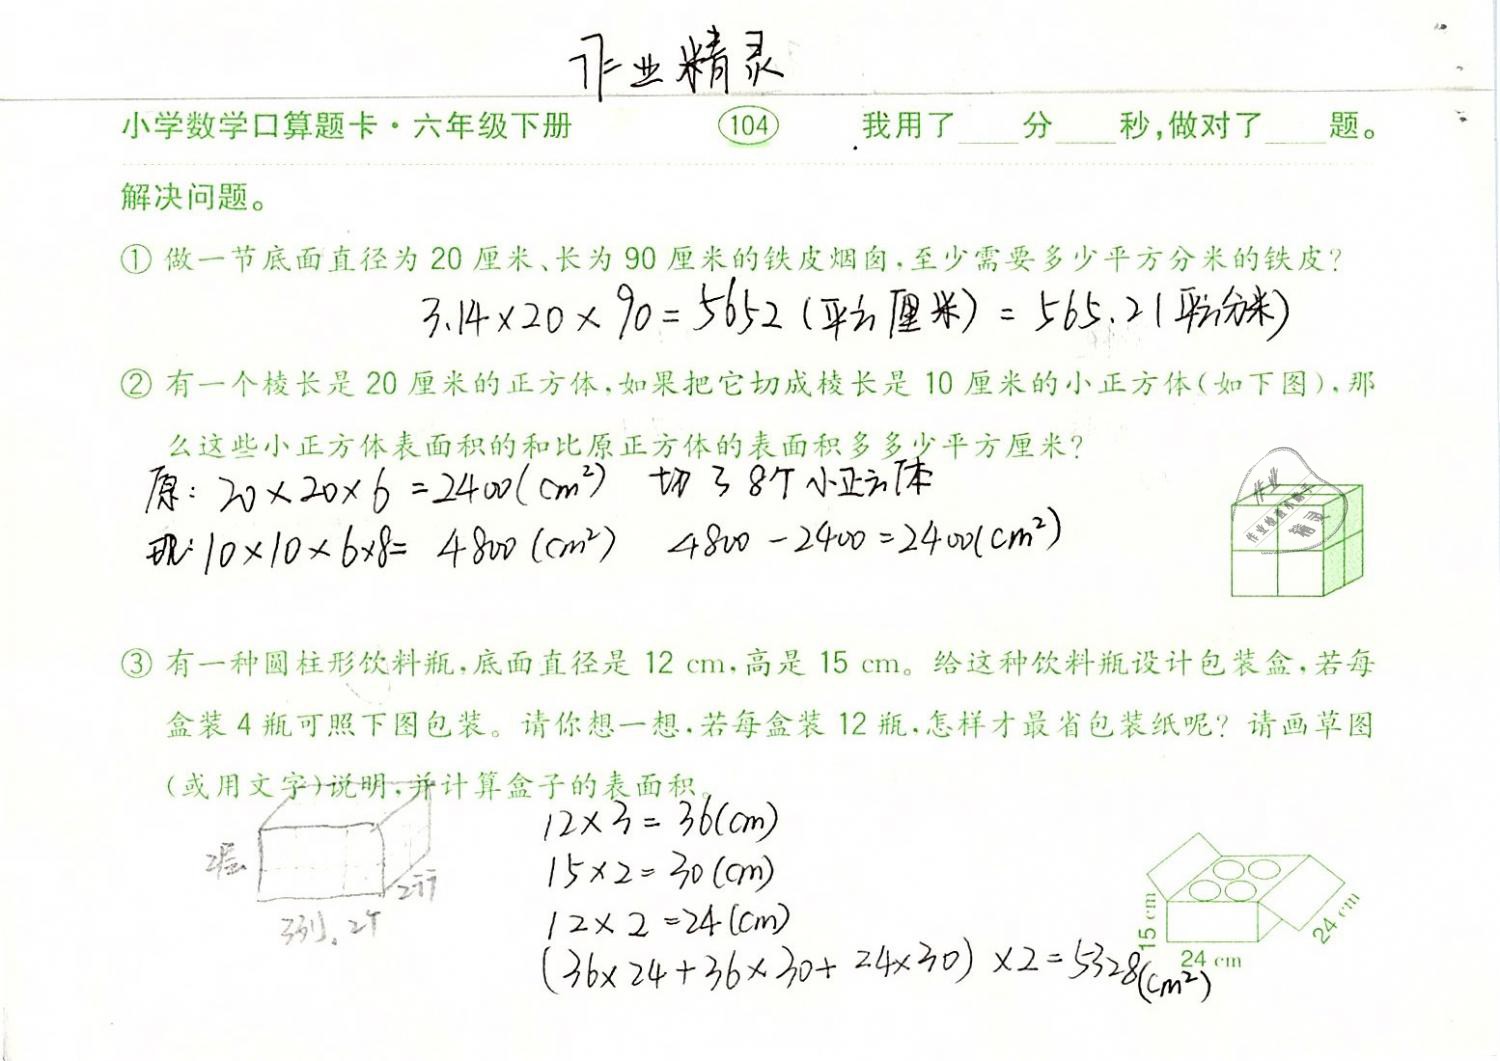 作业精灵
小学数学口算题卡·六年级下册 104 我用了____分____秒,做对了____题。
解决问题。
① 做一节底面直径为 20 厘米、长为 90 厘米的铁皮烟囱,至少需要多少平方分米的铁皮?
3.14×20×90=5652(平方厘米)=565.2(平方分米)
② 有一个棱长是 20 厘米的正方体,如果把它切成棱长是 10 厘米的小正方体(如下图),那
么这些小正方体表面积的和比原正方体的表面积多多少平方厘米?
原:20×20×6=2400(cm²) 切了8个小正方体
现:10×10×6×8=4800(cm²) 4800-2400=2400(cm²)
作业
精灵
③ 有一种圆柱形饮料瓶,底面直径是 12 cm,高是 15 cm。给这种饮料瓶设计包装盒,若每
盒装 4 瓶可照下图包装。请你想一想,若每盒装 12 瓶,怎样才最省包装纸呢?请画草图
(或用文字)说明,并计算盒子的表面积。
12×3=36(cm)
15×2=30(cm)
12×2=24(cm)
(36×24+36×30+24×30)×2=5328(cm²)
2层
2行
3列,2个
15 cm
24 cm
24 cm